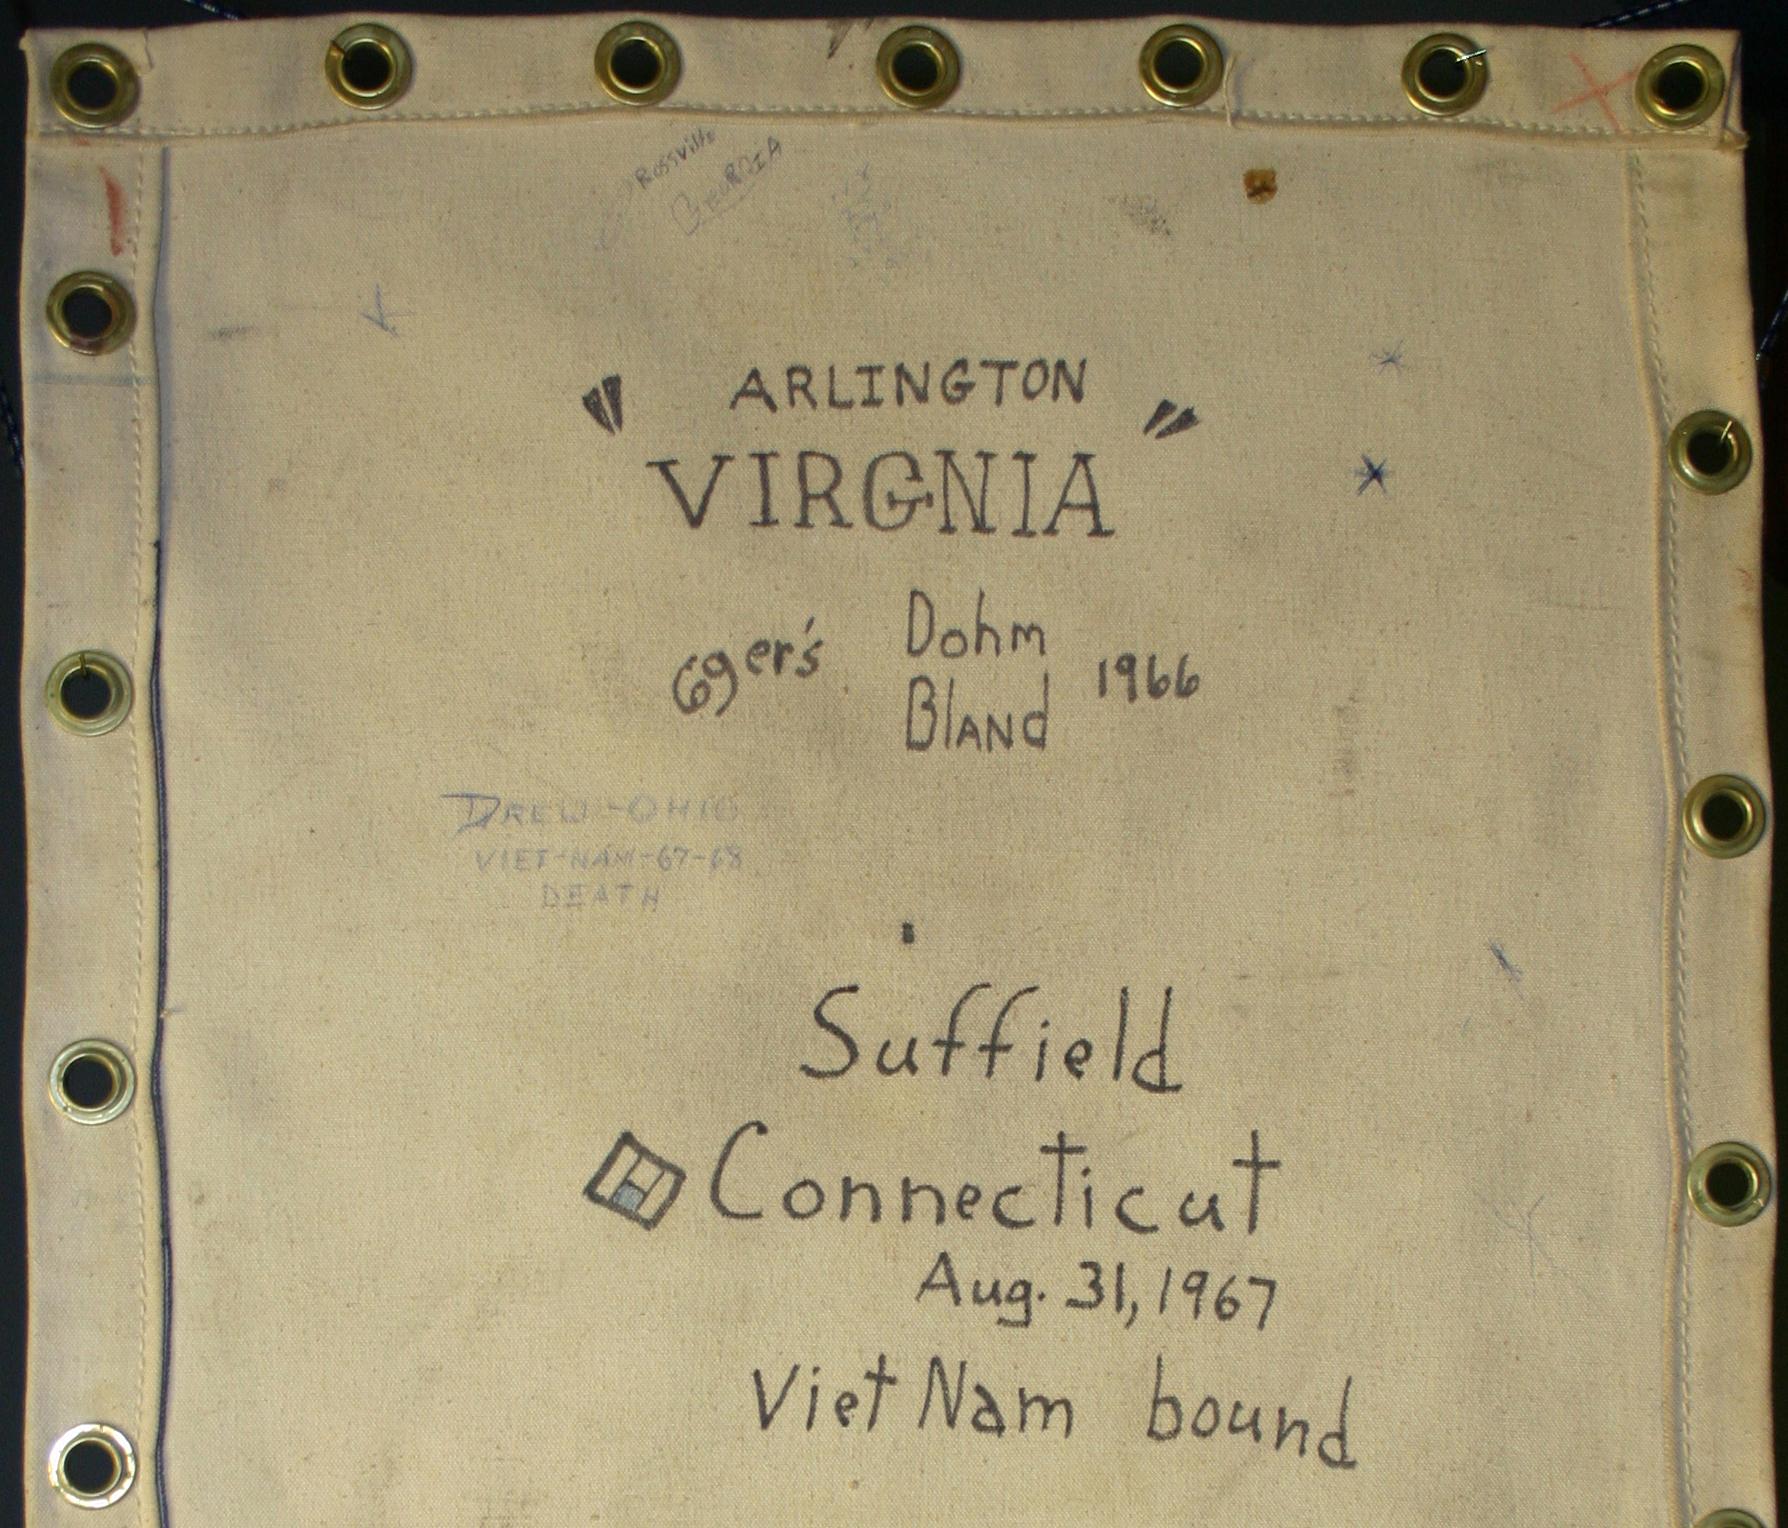 Rossville
GEORGIA
" ARLINGTON "
VIRGNIA
69er's Dohm 1966
Bland
DREW-OHIO
VIET-NAM-67-68
DEATH
Suffield
Connecticut
Aug. 31, 1967
Viet Nam bound